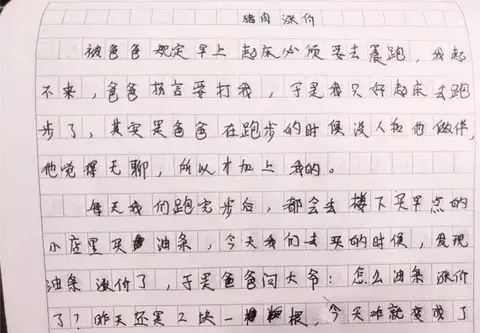 猪肉涨价
被爸爸规定早上起床必须要去晨跑，我起
不来，爸爸扬言要打我，于是我只好起床去跑
步了，其实是爸爸在跑步的时候没人和他做伴，
他觉得无聊，所以才加上我的。
每天我们跑完步后，都会去楼下买早点的
小店里买油条，今天我们去买的时候，发现
油条涨价了，于是爸爸问大爷：怎么油条涨价
了？昨天还是2块一根，今天就变成了